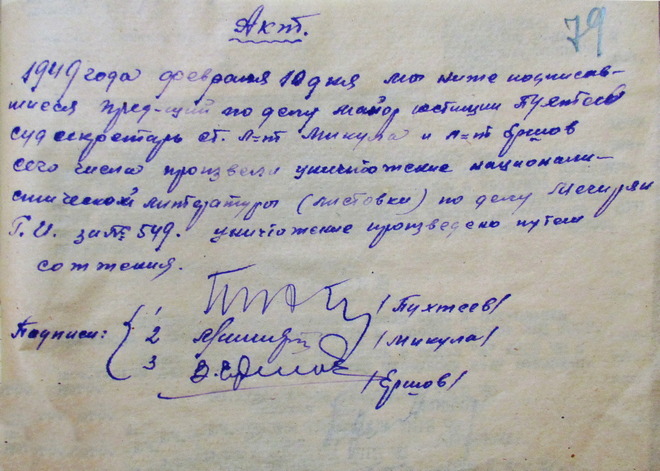 Акт.
79
1949 года февраля 10 дня мы ниже подписав-
шиеся пред-щий по делу майор юстиции Пухтеев
суд секретарь ст. л=т Микула и л=т Ершов
сего числа произвели уничтожение национали-
стической литературы (листовки) по делу
Г. И. за № 549. уничтожение произведено путем
сожжения.
Подписи:
1
/Пухтеев/
2
/Микула/
3 В. Ершов
/Ершов/